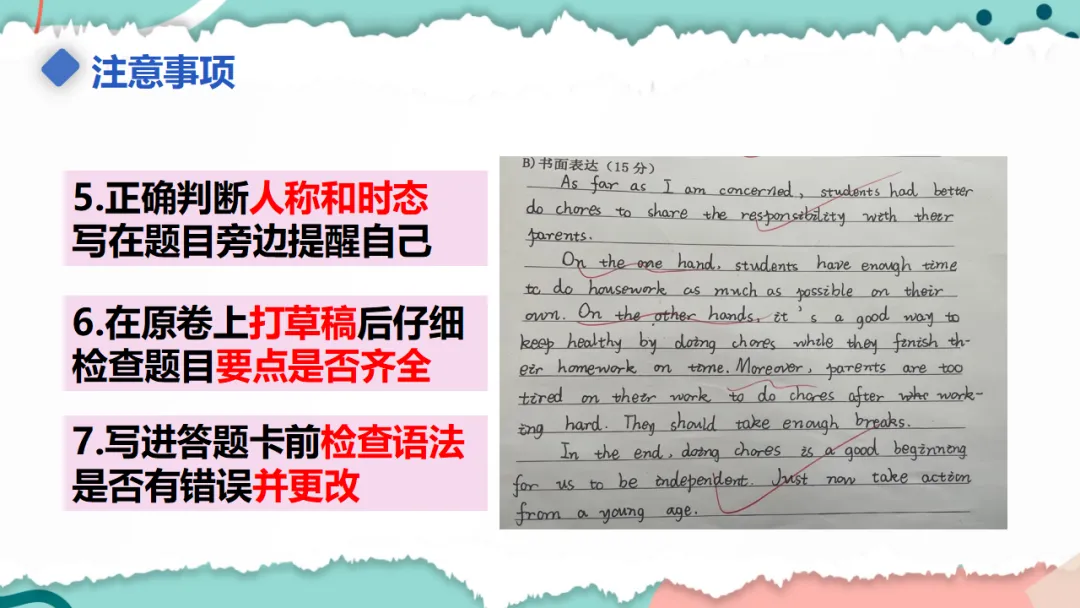 注意事项
5.正确判断人称和时态
写在题目旁边提醒自己
6.在原卷上打草稿后仔细
检查题目要点是否齐全
7.写进答题卡前检查语法
是否有错误并更改
B) 书面表达（15 分）
As far as I am concerned, students had better
do chores to share the responsibility with their
parents.
On the one hand, students have enough time
to do housework as much as possible on their
own. On the other hands, it's a good way to
keep healthy by doing chores while they finish th-
eir homework on time. Moreover, parents are too
tired on their work to do chores after work-
ing hard. They should take enough breaks.
In the end, doing chores is a good beginning
for us to be independent. Just now take action
from a young age.